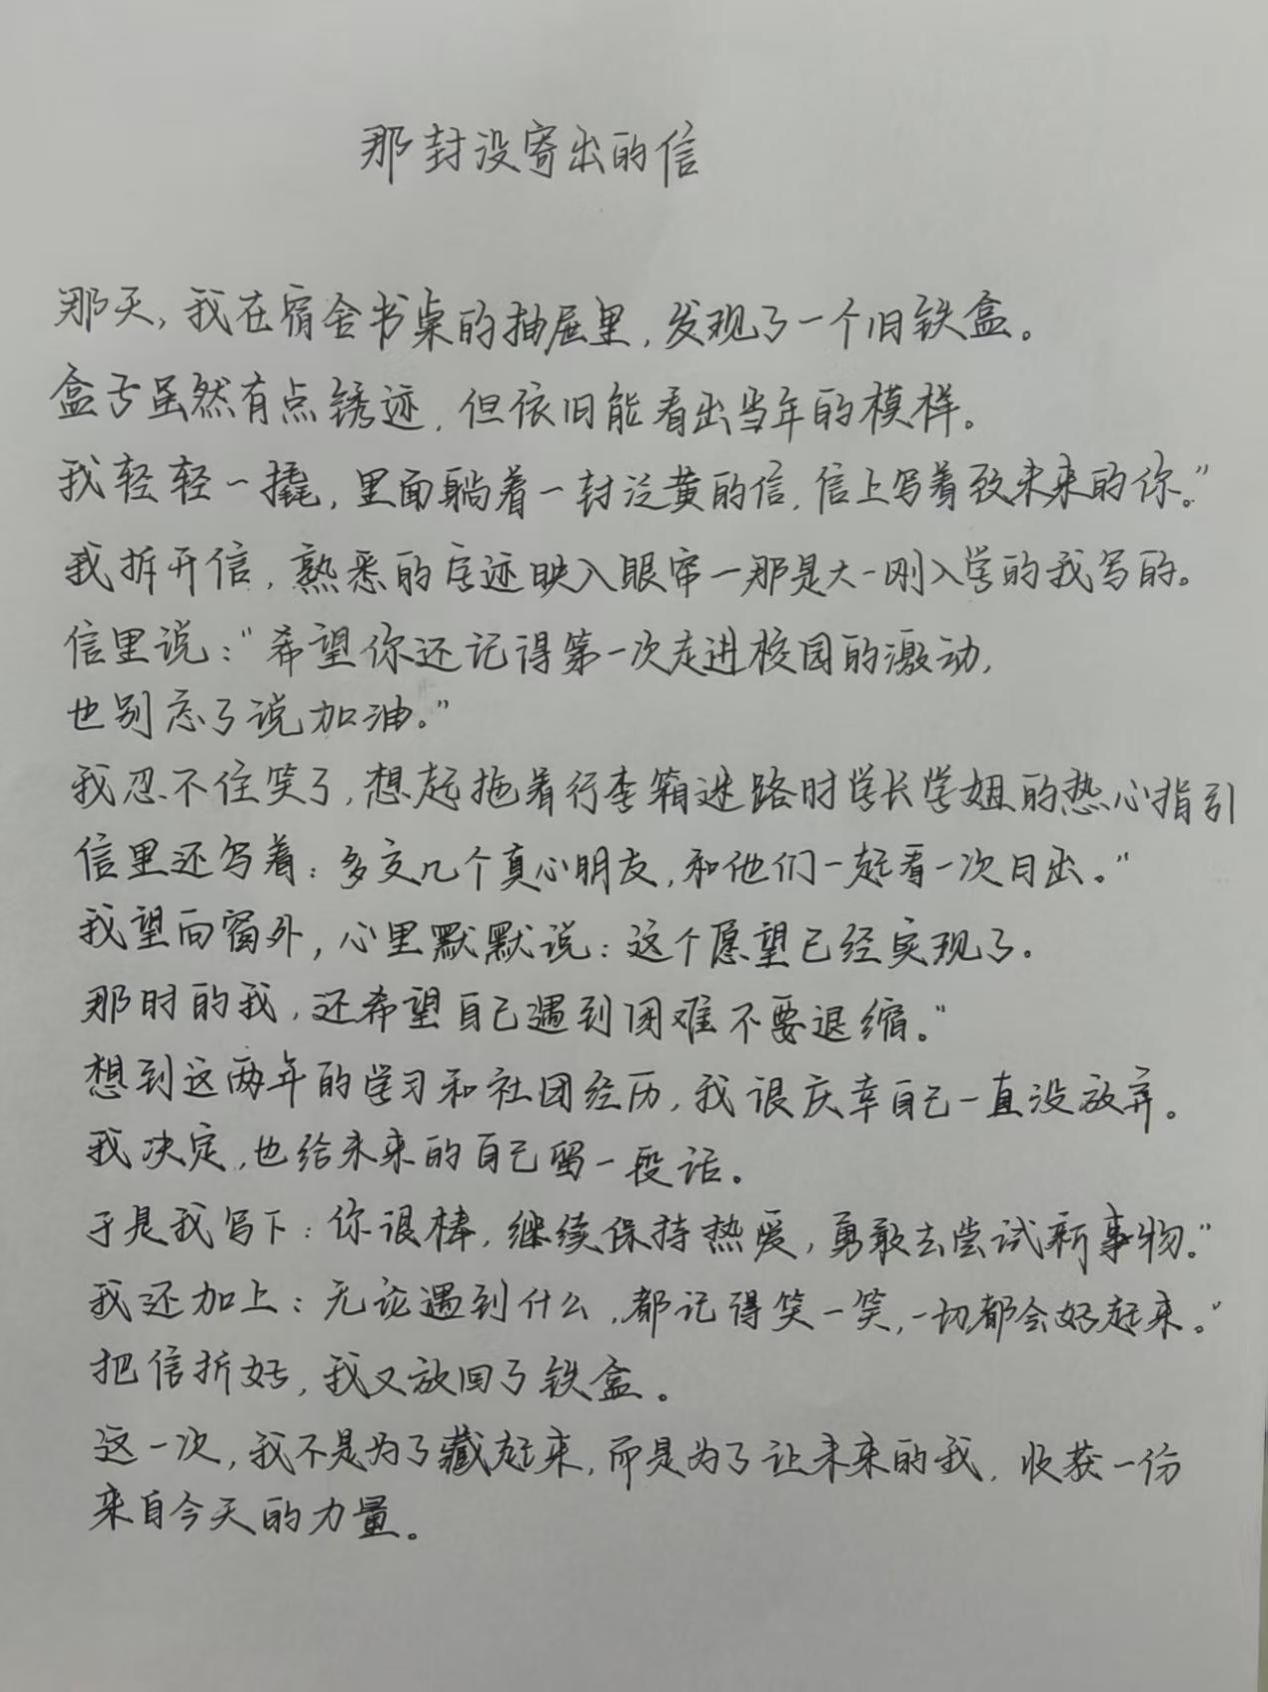 那封没寄出的信
那天，我在宿舍书桌的抽屉里，发现了一个旧铁盒。
盒子虽然有点锈迹，但依旧能看出当年的模样。
我轻轻一撬，里面躺着一封泛黄的信，信上写着致未来的你。”
我拆开信，熟悉的字迹映入眼帘一那是大一刚入学的我写的。
信里说：“希望你还记得第一次走进校园的激动，
也别忘了说加油。”
我忍不住笑了，想起拖着行李箱迷路时学长学姐的热心指引
信里还写着：多交几个真心朋友，和他们一起看一次日出。”
我望向窗外，心里默默说：这个愿望已经实现了。
那时的我，还希望自己遇到困难不要退缩。”
想到这两年的学习和社团经历，我很庆幸自己一直没放弃。
我决定，也给未来的自己留一段话。
于是我写下：你很棒，继续保持热爱，勇敢去尝试新事物。”
我还加上：无论遇到什么，都记得笑一笑，一切都会好起来。”
把信折好，我又放回了铁盒。
这一次，我不是为了藏起来，而是为了让未来的我，收获一份
来自今天的力量。